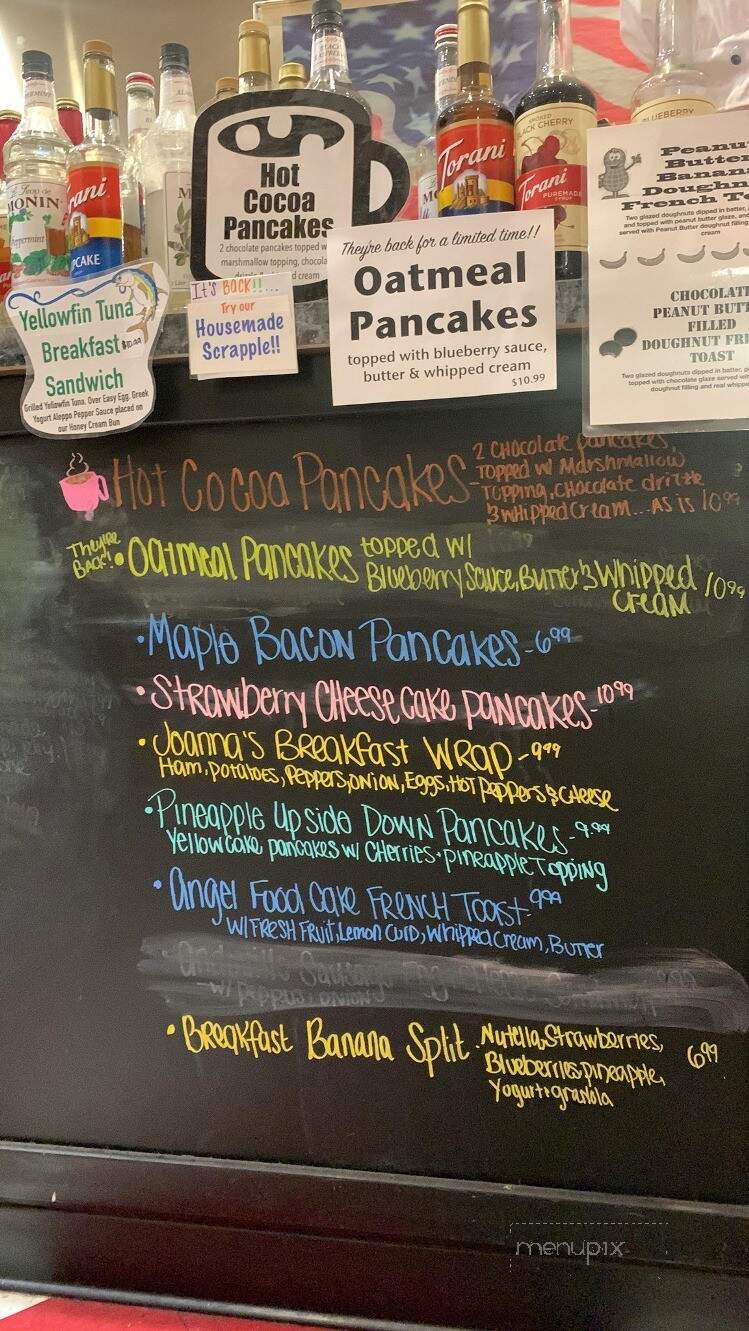 MONIN
Peppermint
Torani
Torani
BLACK CHERRY
Torani
PUREMADE
BLUEBERRY
Hot
Cocoa
Pancakes
2 chocolate pancakes topped w
marshmallow topping, chocola
d cream
Yellowfin Tuna
Breakfast
Sandwich
Grilled Yellowfin Tuna, Over Easy Egg, Greek
Yogurt Aleppo Pepper Sauce placed on
our Honey Cream Bun
It's BACK!!....
Try our
Housemade
Scrapple!!
They're back for a limited time!!
Oatmeal
Pancakes
topped with blueberry sauce,
butter & whipped cream
$10.99
Peanu
Butter
Banana
Doughn
French To
Two glazed doughnuts dipped in batter,
and topped with peanut butter glaze, an
served with Peanut Butter doughnut filling
cream
CHOCOLATE
PEANUT BUTT
FILLED
DOUGHNUT FRE
TOAST
Two glazed doughnuts dipped in batter, g
topped with chocolate glaze served wit
doughnut filling and real whipp
Hot Cocoa Pancakes - 2 Chocolate pancakes,
Topped w/ Marshmallow
Topping, Chocolate drizzle
& whipped cream... As is 10.99
They're
Back! • Oatmeal Pancakes topped w/
Blueberry Sauce, Butter & Whipped
Cream 10.99
• Maple Bacon Pancakes - 6.99
• Strawberry Cheese cake pancakes - 10.99
• Joanna's Breakfast Wrap - 9.99
Ham, potatoes, Peppers, onion, Eggs, Hot peppers & cheese
• Pineapple Upside Down Pancakes - 9.99
Yellow cake pancakes w/ cherries + pineapple Topping
• Angel Food Cake French Toast - 9.99
w/ Fresh Fruit, Lemon Curd, Whipped Cream, Butter
• Breakfast Banana Split - Nutella, Strawberries,
Blueberries, pineapple,
Yogurt + granola 6.99
menupix